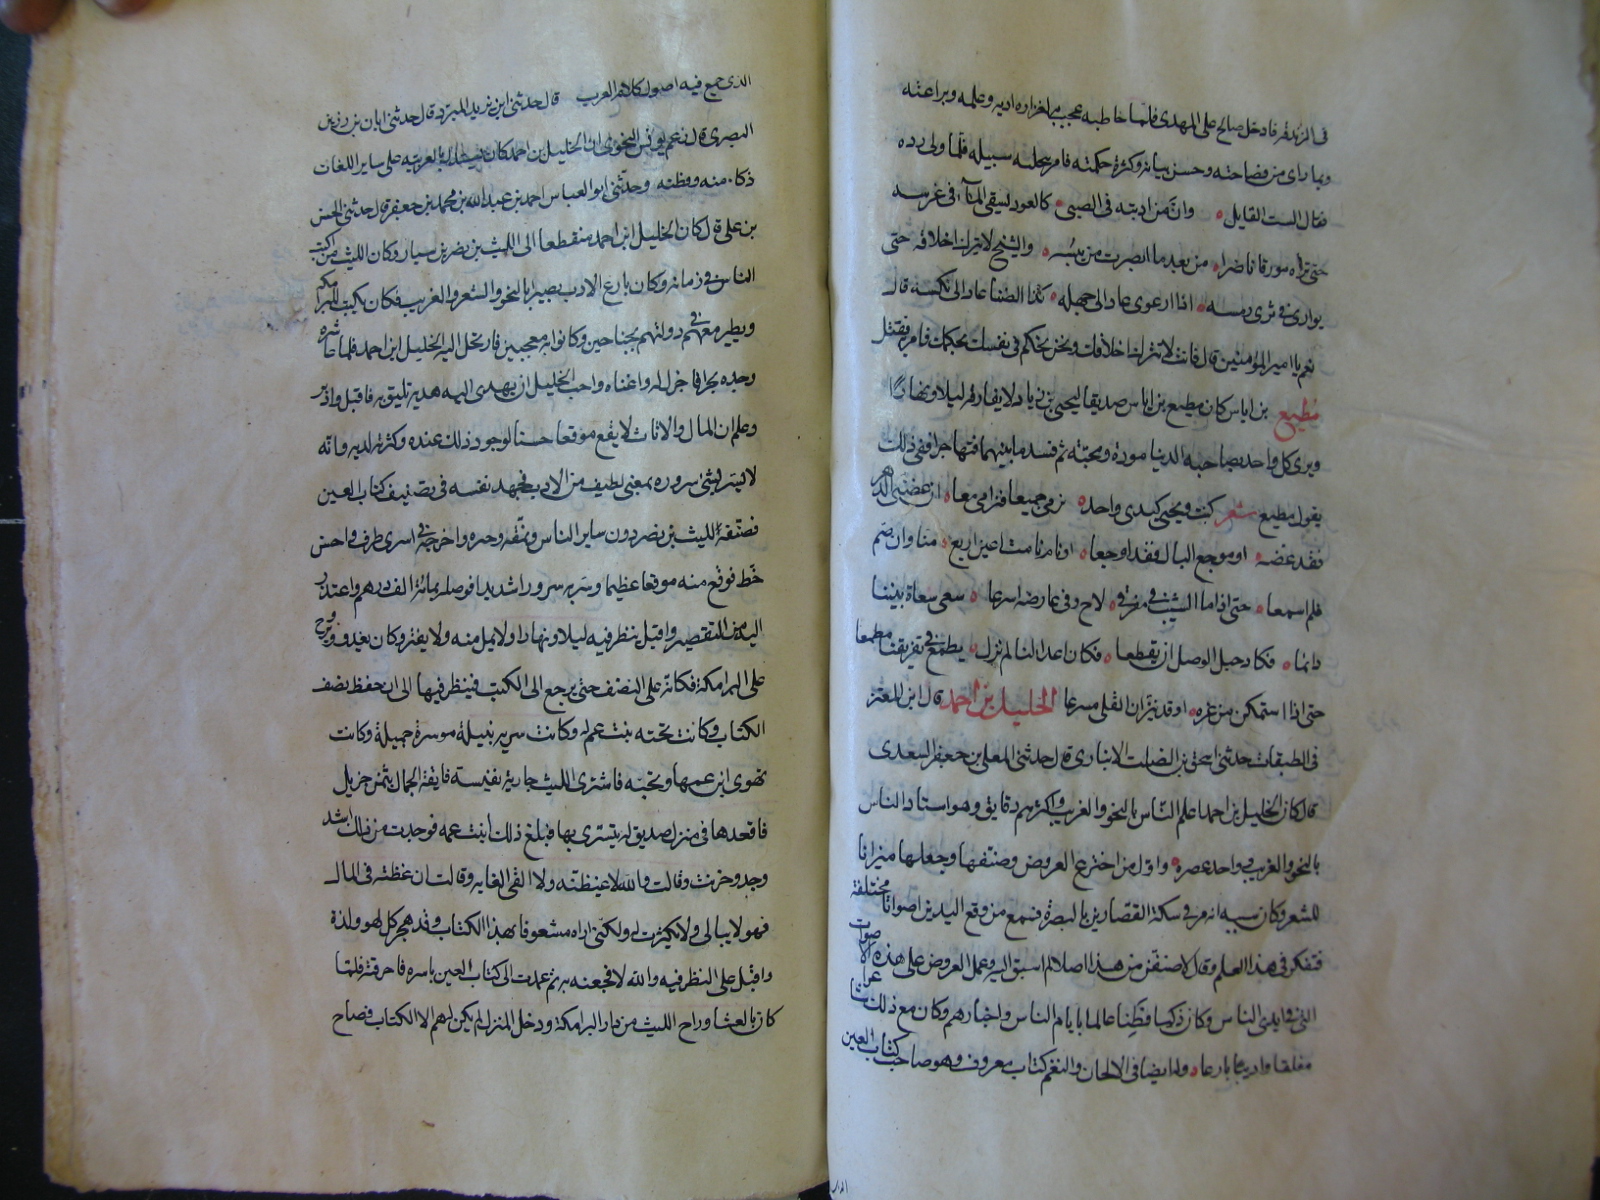 فى الزندقه فادخل صالح على المهدى فلما خاطبه عجب من غزاره ادبه وعلمه وبراعته
وبما راى من فصاحته وحسن بيانه وكثرة حكمته فامر بتخليه سبيله فلما ولى رده
فقال الست القايل وان من ادبته فى الصبى كالعود يسقى الماء فى غرسه
حتى تراه مورقا ناضرا من بعد ما ابصرت من يبسه والشيخ لا يترك اخلاقه حتى
يوارى فى ثرى رمسه اذا ارعوى عاد الى جهله كذا الضنا عاد الى نكسه قال
نعم يا امير المؤمنين قال فانت لا تترك اخلاقك ونحن نحكم فى نفسك بحكمك فامر فقتل
مطيع بن اياس كان مطيع بن اياس صديقا ليحيى بن زياد لا يفارقه ليلا ونهارا
ويرى كل واحد بصاحبه الدنيا مودة ومحبة ثم فسد ما بينهما فتهاجرا ففى ذلك
يقول مطيع شعر كنت ويحيى كيدى واحد نرمى جميعا فنرامى معا ان عضنى الدهر
فقد عضه او موجع البال فقد اوجعا او نام نامت اعين اربع منا وان صم
فلم اسمعا حتى اذا ما الشيب فى مفرقى لاح وفى عارضه اسرعا سعى سعاة بيننا
دايما فكاد حبل الوصل ان يقطعا فكان اعدا لنا لم نزل يطمع فى تفريقنا مطمعا
حتى اذا استمكن من غره اوقد نيران القلى مسرعا الخليل بن احمد قال ابن المعتز
فى الطبقات حدثنى اسحق بن الصلت الانبارى قال حدثنى المعلى بن جعفر السعدى
قال كان الخليل بن احمد اعلم الناس بالنحو والغريب واكثرهم دقايق وهو استاد الناس
بالنحو والغريب واحد عصره واول من اخترع العروض وصنفها وجعلها ميزانا
للشعر وكان سببه انه مر فى سكة القصارين بالبصرة فسمع من وقع اليدين اصواتا مختلفة
فتفكر فى هذا العلم وقال لاصنفن من هذا اصلا لم اسبق اليه وعمل العروض على هذه الاصوات
التى فى ايدى الناس وكان ذكيا فطنا عالما بايام الناس واخبارهم وكان مع ذلك شاعرا
مفلقا واديبا بارعا وله ايضا فى الالحان والنغم كتاب معروف وهو صاحب كتاب العين
الذى جمع فيه اصول كلام العرب قال حدثنى ابن يزيد المبرد قال حدثنى ابان بن رزين
البصرى قال زعم يونس النحوى ان الخليل بن احمد كان يستدل بالعربيه على ساير اللغات
ذكاء منه وفطنه وحدثنى ابو العباس احمد بن عبد الله بن محمد بن جعفر قال حدثنى الحسن
بن على قال كان الخليل ابن احمد منقطعا الى الليث بن نصر بن سيار وكان الليث من اكتب
الناس فى زمانه وكان بارع الادب بصيرا بالنحو والشعر والغريب فكان يكتب للبرامكه
ويطير معهم فى دولتهم بجناحين وكانوا به معجبين فارتحل اليه الخليل ابن احمد فلما عاشره
وجده بحرا فاجزل له واغناه واحب الخليل ان يهدى اليه هديه تليق به فاقبل وادبر
وعلم ان المال والاثاث لا يقع موقعا حسنا لوجود ذلك عنده وكثرته لديه وانه
لا يسر بشئ سروره بمعنى لطيف من الادب فجهد نفسه فى تصنيف كتاب العين
فصنفه لليث بن نصر دون ساير الناس ونمقه وحبره واخرجه فى اسرى ظرف واحسن
خط فوقع منه موقعا عظيما وسر به سرورا شديدا فوصله بمائة الف درهم واعتذر
اليه من التقصير واقبل ينظر فيه ليلا ونهارا ولا يمل منه ولا يفتر وكان يغدو ويروح
على البرامكة فكانه على النصف حتى يرجع الى الكتب فينظر فيها الى ان حفظ نصف
الكتاب وكانت تحته بنت عم له وكانت سريه نبيلة موسرة جميلة وكانت
تهوى ابن عمها وتحبه فاشترى الليث جارية نفيسه فايقة الجمال بثمن جزيل
فاقعدها فى منزل صديق له يتسرى بها فبلغ ذلك ابنت عمه فوجدت من ذلك اشد
وجد وحزنت وقالت والله لاغيظنه ولا القى الغايه وقالت ان غظته فى المال
فهو لا يبالى ولا يكترث له ولكننى اراه مشعوفا بهذا الكتاب وقد هجر كل لهو ولذة
واقبل على النظر فيه والله لافجعنه به ثم عمدت الى كتاب العين باسره فاحرقته فلما
كان بالعشا وراح الليث من دار البرامكة ودخل المنزل لم يكن له هم الا الكتاب فصاح